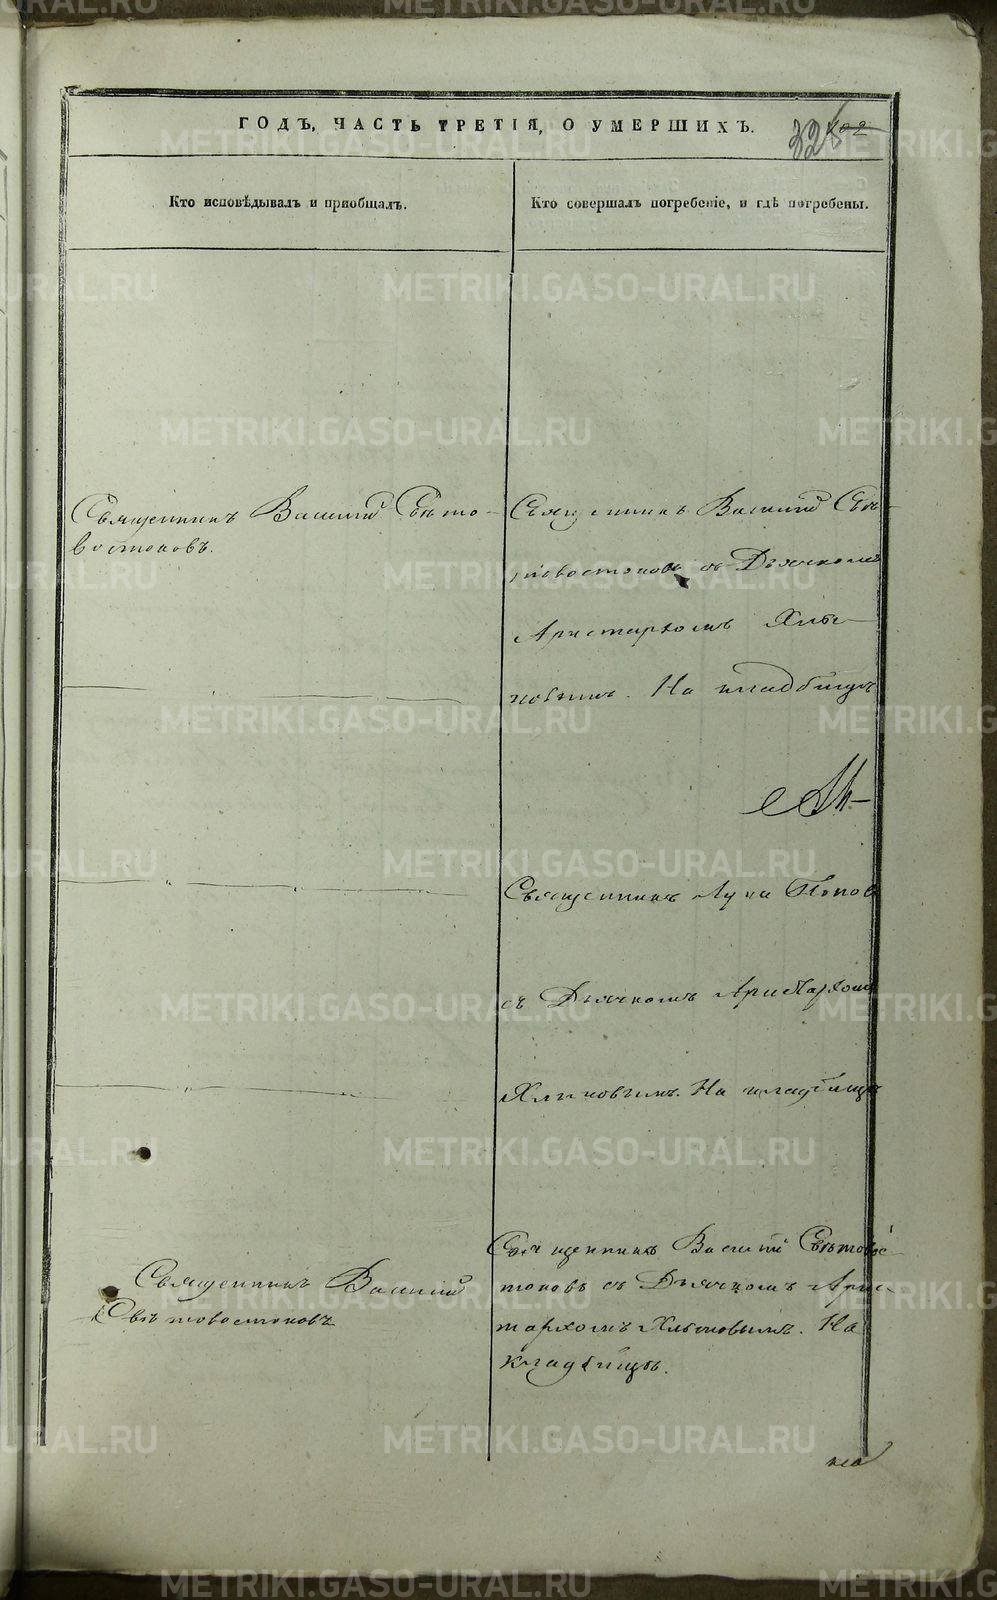 ГОДЪ, ЧАСТЬ ТРЕТІЯ, О УМЕРШИХЪ.
Кто исповѣдывалъ и пріобщалъ.
Кто совершалъ погребеніе, и гдѣ погребены.
Священникъ Василій Свѣто-
востоковъ.
Священникъ Василій Свѣ-
товостоковъ съ Дьячкомъ
Аристархомъ Хлы-
новымъ. На кладбищѣ
Священникъ Лука Поповъ
съ Дьячкомъ Аристархомъ
Хлыновымъ. На кладбищѣ
Священникъ Василій
Свѣтовостоковъ
Священникъ Василій Свѣтовос-
токовъ съ Дьячкомъ Арис-
тархомъ Хлыновымъ. На
кладбищѣ.
METRIKI.GASO-URAL.RU